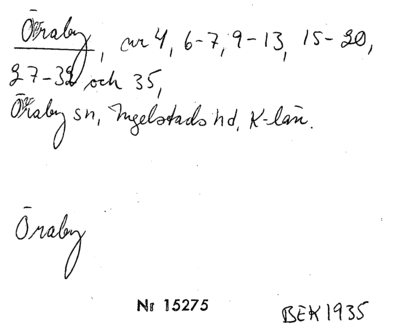 Öraby, nr 4, 6-7, 9-13, 15-20,
27-32 och 35,
Öraby sn, Ingelstads hd, K-län.
Öraby
Nr 15275
BEK 1935